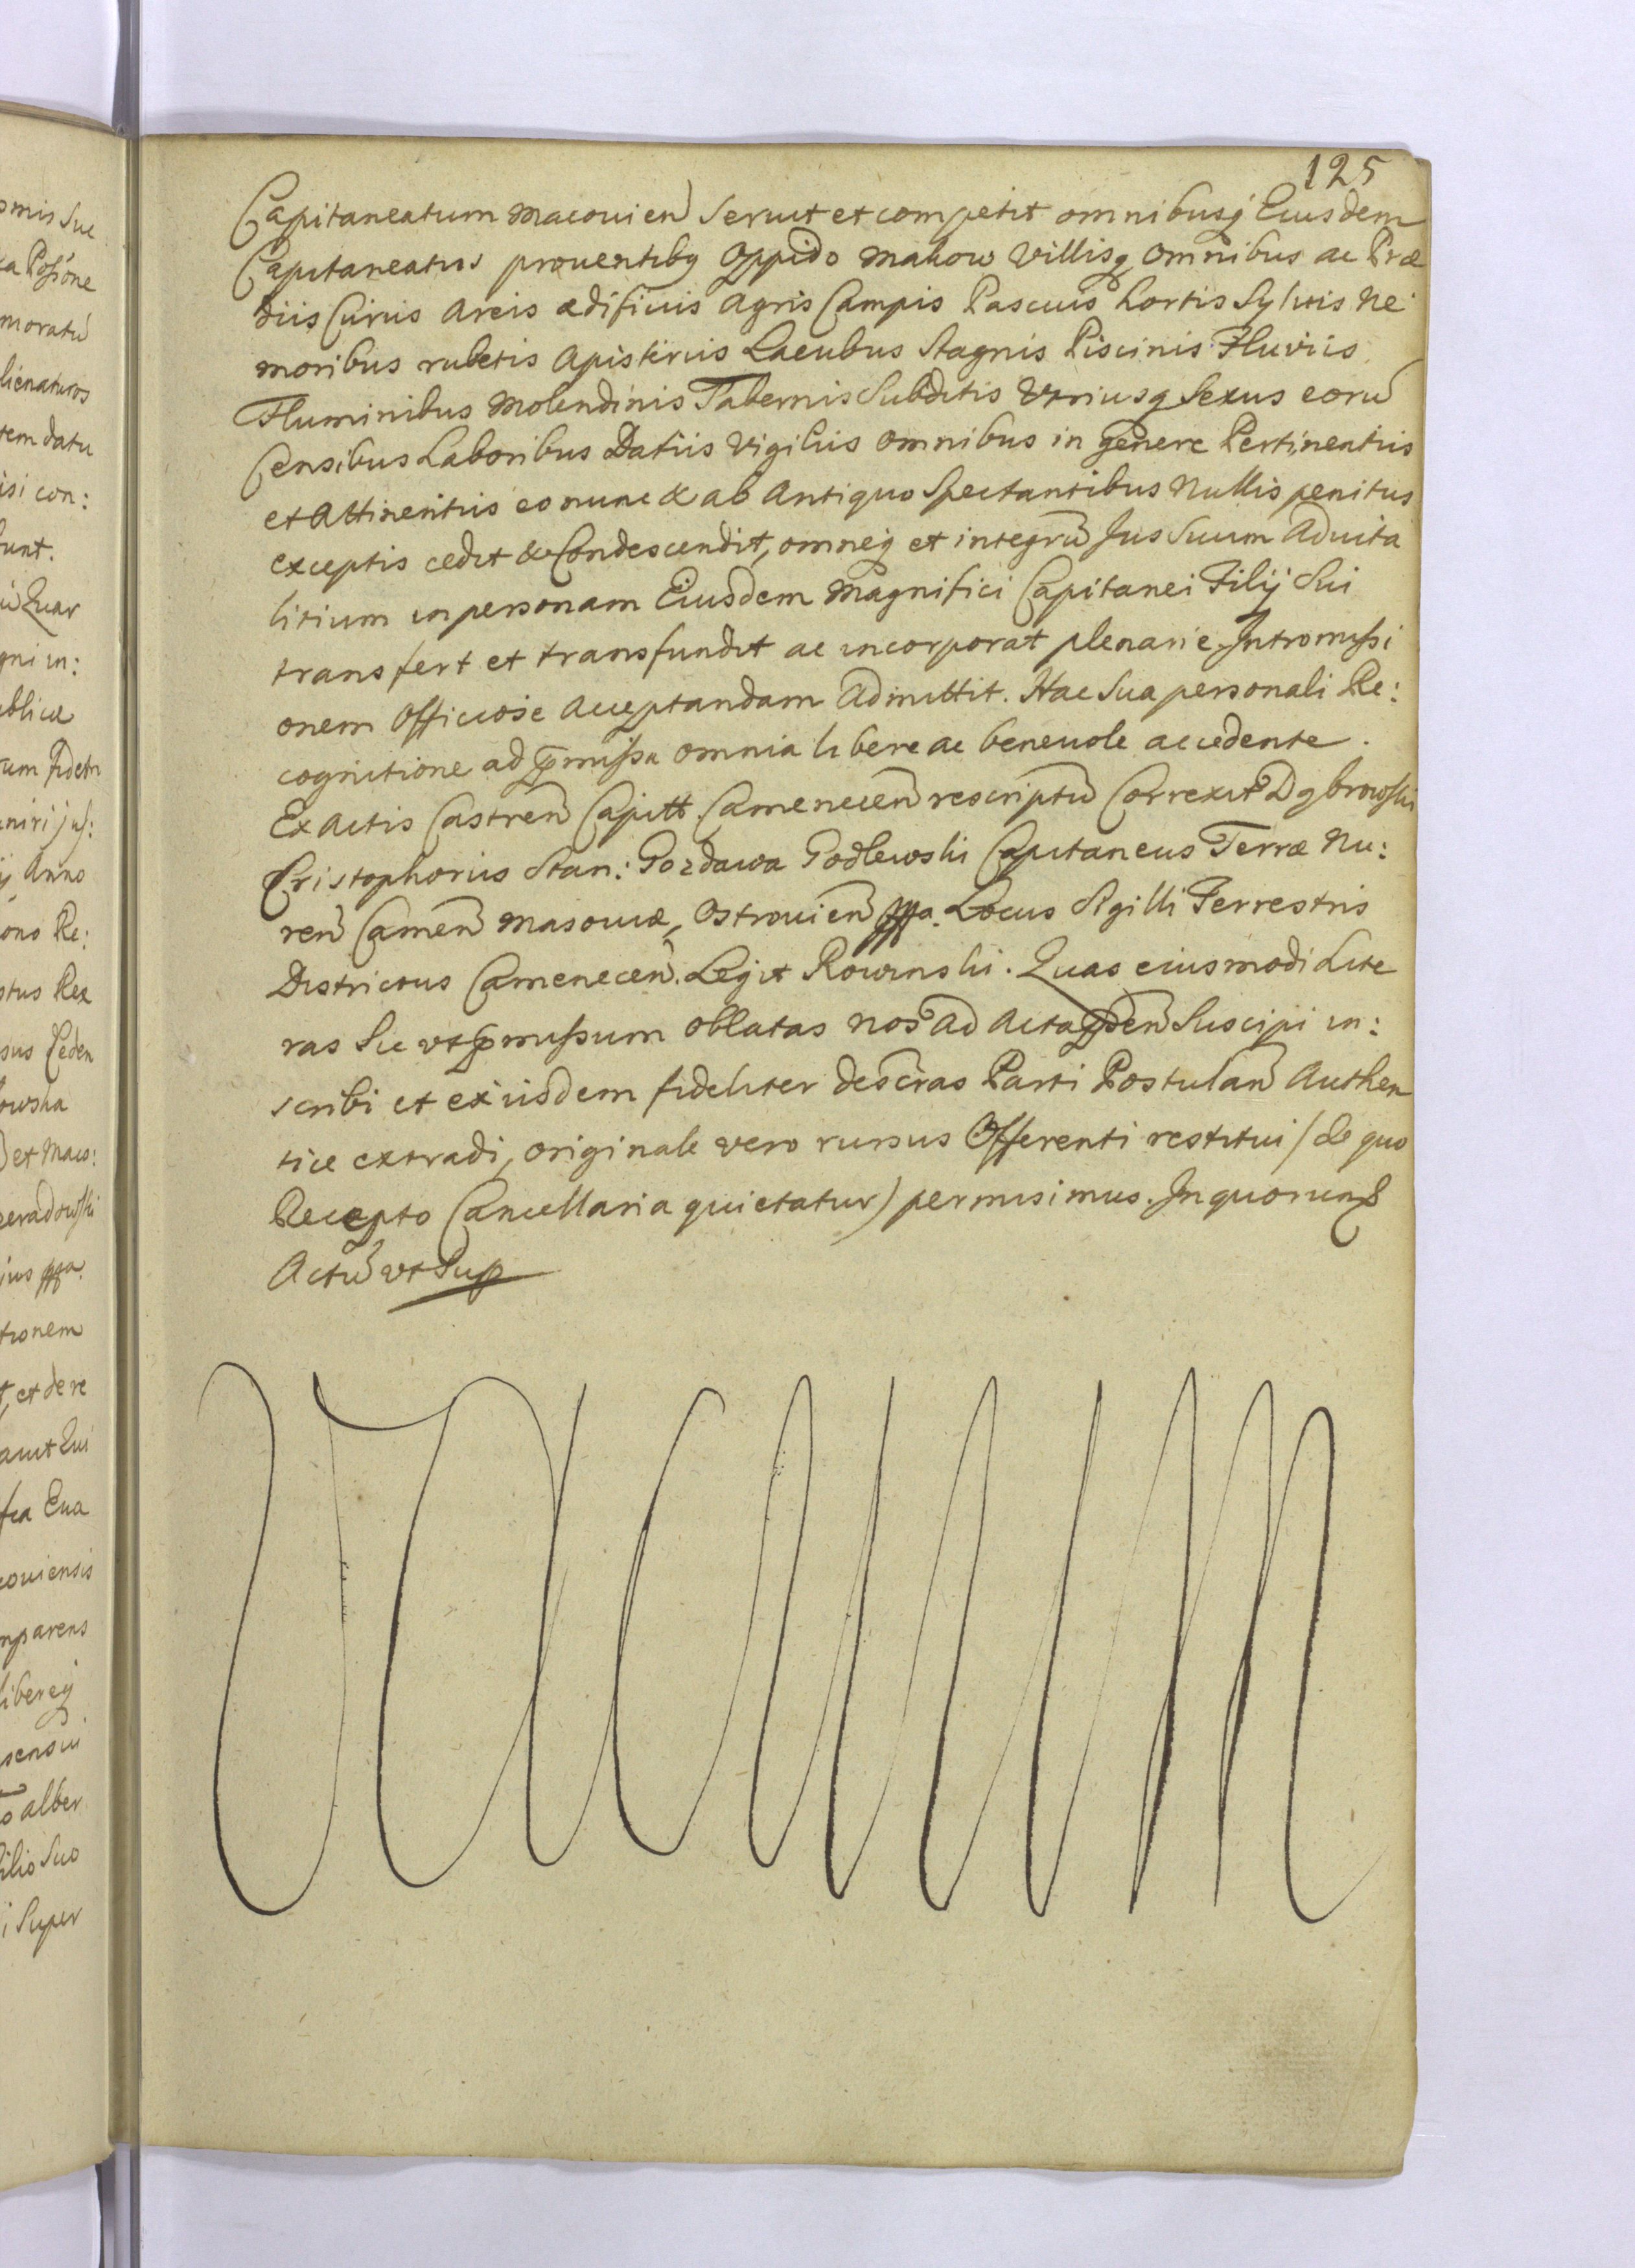 125
Capitaneatum Macouien seruit et competit omnibusq Eiusdem
Capitaneatus prouentibq Oppido Makow Villisq Omnibus ac Præ
diis Curiis Areis ædificiis Agris Campis Pascuis hortis Syluis Ne
moribus rubetis Apisteriis Lacubus Stagnis Piscinis Fluviis
Fluminibus Molendinis Tabernis Subditis Vtriusq Sexus eorū
Censibus Laboribus Datiis Vigiliis omnibus in genere Pertinentiis
et Attinentiis eo nunc & ab Antiquo Spectantibus Nullis penitus
exceptis cedit & Condescendit, omneq et integrū Jus Suum Aduita
litium in personam Eiusdem Magnifici Capitanei Filij Sui
transfert et transfundit ac incorporat plenarie, Intromissi
onem Officiose Acceptandam Admittit. Hac Sua personali Re:
cognitione ad pmissa omnia libere ac beneuole accedente.
Ex Actis Castren Capitt Camenecen rescriptū Correxit Dąbrowski
Cristophorus Stan: Gozdawa Godlewski Capitaneus Terræ Nu:
ren Camen Masouiæ, Ostrouien mppa. Locus Sigilli Terrestris
Districtus Camenecen. Legit Rowinski. Quas eiusmodi Lite
ras Sic vt pmissum Oblatas nos Ad Acta psen Suscipi in:
scribi et ex iisdem fideliter descras Parti Postulan Authen
tice extradi, originale vero rursus Offerenti restitui / de quo
Recepto Cancellaria quietatur) permisimus. In quorum &
Actū vt Sup
omis Suc
ta Poss'one
moratū
lienaturos
tem datu
isi con:
sunt.
ū Quar
gni in:
ublicæ
rum fidem
eniri jus:
ij Anno
ono Re:
stus Rex
sus Leden
owska
et Maco:
zeradowski
ius mppa.
tionem
t, et de re
auit Qui
fica Eua
couiensis
mparens
libereq
sensui
to alber
filio Suo
i Super